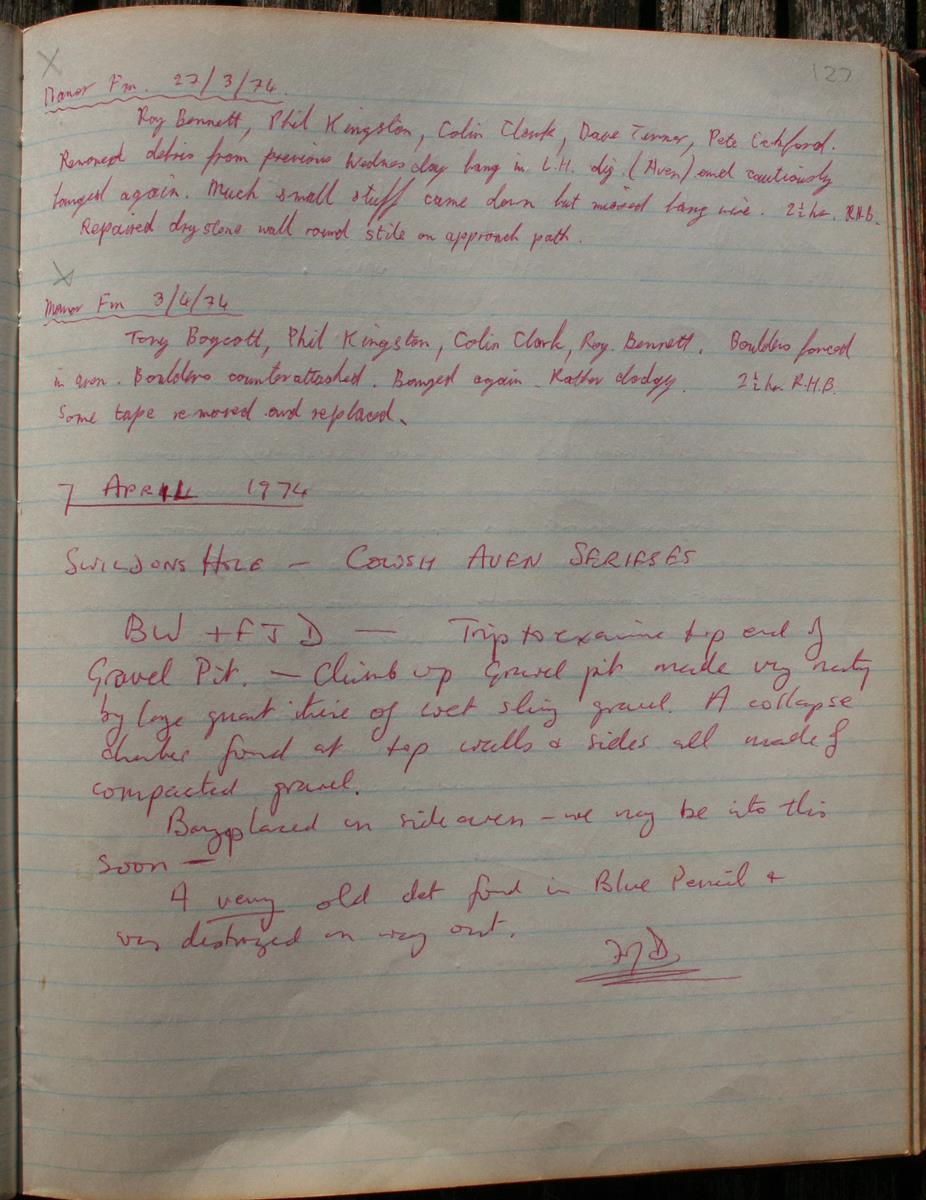 127
Manor Fm. 27/3/74.
Roy Bennett, Phil Kingston, Colin Clark, Dave Turner, Pete
Removed debris from previous Wednesday bang in L.H. dig. (Aven) and cautiously
banged again. Much small stuff came down but missed bang wire. 2½ hr. R.H.B.
Repaired dry stone wall round stile on approach path.
Manor Fm 3/4/74
Tony Boycott, Phil Kingston, Colin Clark, Roy Bennett. Boulders forced
in aven. Boulders counterattacked. Banged again. Rather dodgy. 2½ hr R.H.B.
Some tape removed and replaced.
7 APRIL 1974
SWILDONS HOLE — COWSH AVEN SERIESES
BW + FJD — Trip to examine top end of
Gravel Pit. — Climb up Gravel pit made very nasty
by large quantities of wet slimy gravel. A collapse
chamber found at top walls & sides all made of
compacted gravel.
Bang placed in side aven – we may be into this
soon —
A very old det found in Blue Pencil &
was destroyed on way out.
FJD